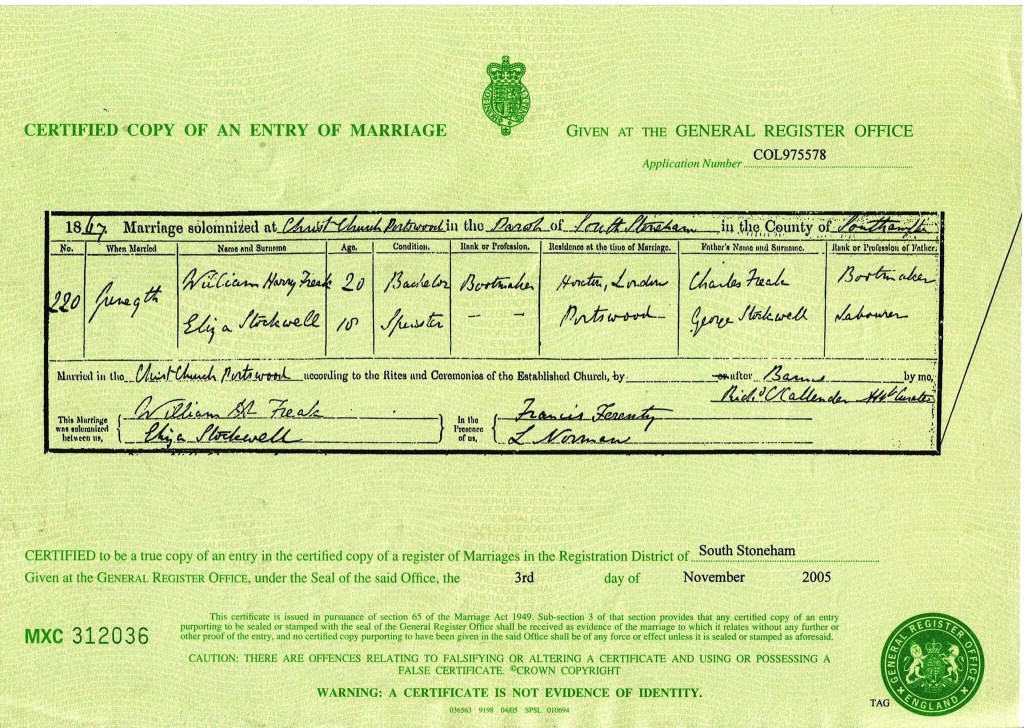 CERTIFIED COPY OF AN ENTRY OF MARRIAGE
GIVEN AT THE GENERAL REGISTER OFFICE
Application Number COL975578
1867. Marriage solemnized at Christ Church Portswood in the Parish of South Stoneham in the County of Southampton
No. When Married Name and Surname Age. Condition. Rank or Profession. Residence at the time of Marriage. Father's Name and Surname. Rank or Profession of Father.
220 June 9th William Harry Freak 20 Bachelor Bootmaker Hoxton, London Charles Freak Bootmaker
Eliza Stockwell Spinster — — Portswood George Stockwell Labourer
Married in the Christ Church Portswood according to the Rites and Ceremonies of the Established Church, by or after Banns by me,
Richd C Callender Curate
This Marriage was solemnized between us, William H Freak
Eliza Stockwell
In the Presence of us, Francis
L Norman
CERTIFIED to be a true copy of an entry in the certified copy of a register of Marriages in the Registration District of South Stoneham
Given at the GENERAL REGISTER OFFICE, under the Seal of the said Office, the 3rd day of November 2005
MXC 312036
This certificate is issued in pursuance of section 65 of the Marriage Act 1949. Sub-section 3 of that section provides that any certified copy of an entry
purporting to be sealed or stamped with the seal of the General Register Office shall be received as evidence of the marriage to which it relates without any further or
other proof of the entry, and no certified copy purporting to have been given in the said Office shall be of any force or effect unless it is sealed or stamped as aforesaid.
CAUTION: THERE ARE OFFENCES RELATING TO FALSIFYING OR ALTERING A CERTIFICATE AND USING OR POSSESSING A
FALSE CERTIFICATE. ©CROWN COPYRIGHT
WARNING: A CERTIFICATE IS NOT EVIDENCE OF IDENTITY.
036563 9198 04/05 SPSL 010694
GENERAL REGISTER OFFICE
ENGLAND
TAG